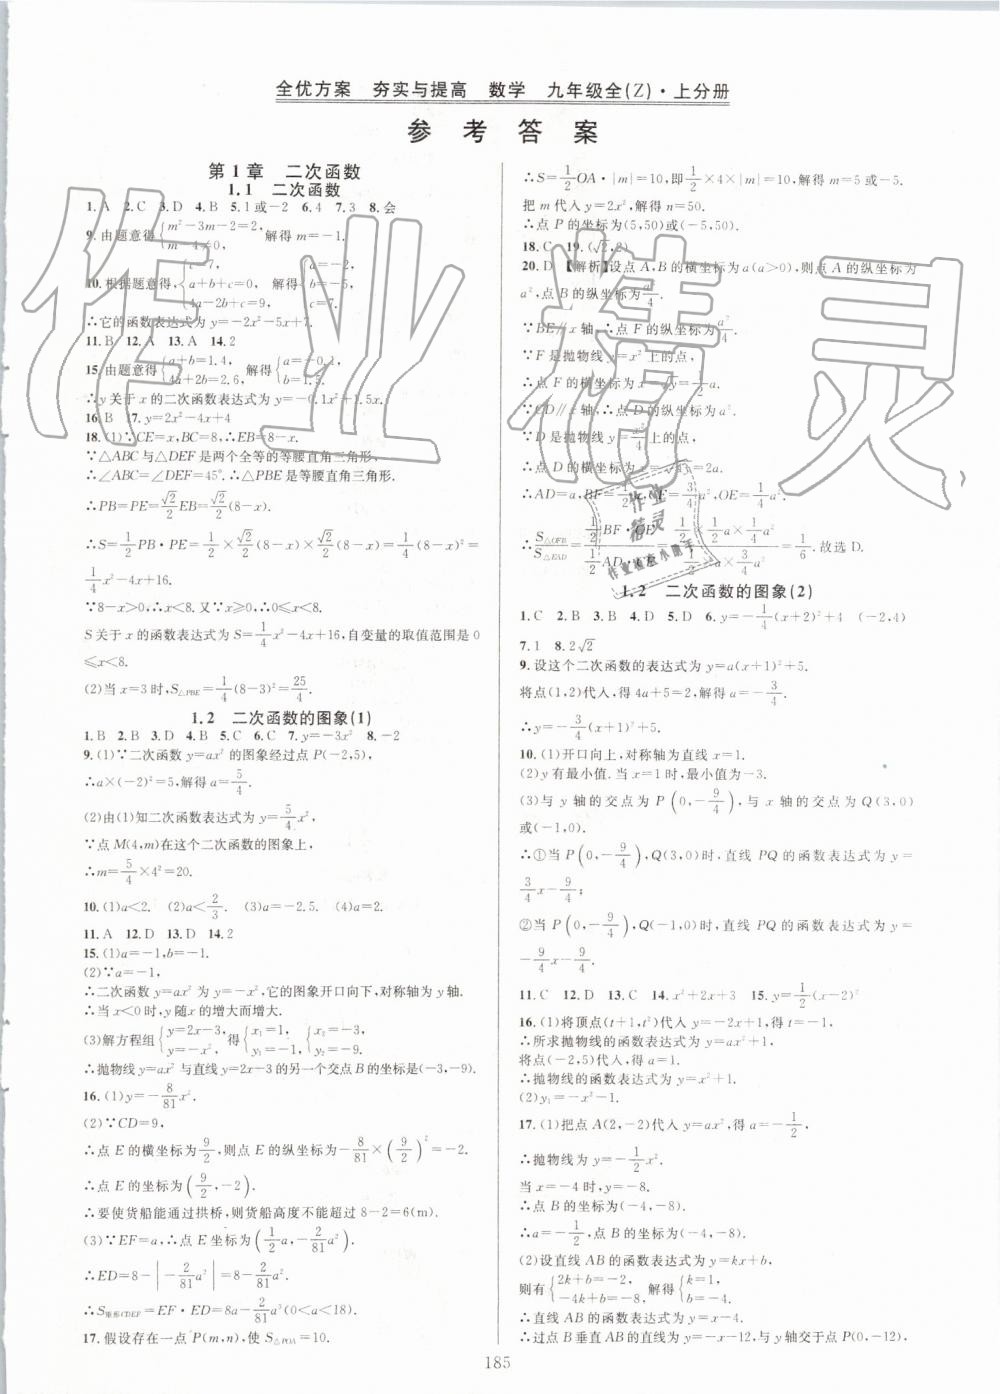 全优方案 夯实与提高 数学 九年级全(Z)·上分册
参考答案
第1章 二次函数
1.1 二次函数
1. A 2. C 3. D 4. B 5. 1或-2 6. 4 7. 3 8. 会
9. 由题意得{m²-3m-2=2, m-4≠0, 解得 m=-1.
10. 根据题意得,{c=7, a+b+c=0, 4a-2b+c=9, 解得{a=-2, b=-5, c=7.
∴它的函数表达式为 y=-2x²-5x+7.
11. B 12. A 13. A 14. 2
15. 由题意得{a+b=1.4, 4a+2b=2.6, 解得{a=-0.1, b=1.5.
∴y关于x的二次函数表达式为 y=-0.1x²+1.5x.
16. B 17. y=2x²-4x+4
18. (1)∵CE=x,BC=8,∴EB=8-x.
∵△ABC与△DEF是两个全等的等腰直角三角形,
∴∠ABC=∠DEF=45°.∴△PBE是等腰直角三角形.
∴PB=PE=√2/2EB=√2/2(8-x).
∴S=1/2PB·PE=1/2×√2/2(8-x)×√2/2(8-x)=1/4(8-x)²=
1/4x²-4x+16.
∵8-x>0,∴x<8.又∵x≥0,∴0≤x<8.
S关于x的函数表达式为 S=1/4x²-4x+16,自变量的取值范围是0
≤x<8.
(2)当 x=3时,S△PBE=1/4(8-3)²=25/4.
1.2 二次函数的图象(1)
1. B 2. B 3. D 4. B 5. C 6. C 7. y=-3x² 8. -2
9. (1)∵二次函数 y=ax² 的图象经过点 P(-2,5),
∴a×(-2)²=5,解得 a=5/4.
(2)由(1)知二次函数表达式为 y=5/4x²,
∵点 M(4,m)在这个二次函数的图象上,
∴m=5/4×4²=20.
10. (1)a<2. (2)a<2/3. (3)a=-2.5. (4)a=2.
11. A 12. D 13. D 14. 2
15. (1)a=-1,b=-1.
(2)∵a=-1,
∴二次函数 y=ax² 为 y=-x²,它的图象开口向下,对称轴为 y轴.
∴当 x<0时,y随x的增大而增大.
(3)解方程组{y=2x-3, y=-x², 得{x₁=1, y₁=-1, {x₂=-3, y₂=-9.
∴抛物线 y=ax² 与直线 y=2x-3 的另一个交点 B 的坐标是(-3,-9).
16. (1)y=-8/81x².
(2)∵CD=9,
∴点 E 的横坐标为9/2,则点 E 的纵坐标为-8/81×(9/2)²=-2.
∴点 E 的坐标为(9/2,-2).
∴要使货船能通过拱桥,则货船高度不能超过 8-2=6(m).
(3)∵EF=a,∴点 E 坐标为(1/2a,-2/81a²).
∴ED=8-|-2/81a²|=8-2/81a².
∴S矩形CDEF=EF·ED=8a-2/81a³(0<a<18).
17. 假设存在一点 P(m,n),使 S△POA=10.
∴S=1/2OA·|m|=10,即1/2×4×|m|=10,解得 m=5或-5.
把 m 代入 y=2x²,解得 n=50.
∴点 P 的坐标为(5,50)或(-5,50).
18. C 19. (√2,2)
20. D 【解析】设点 A,B 的横坐标为 a(a>0),则点 A 的纵坐标为
a²,点 B 的纵坐标为a²/4.
∵BE∥x轴,∴点 F 的纵坐标为a²/4.
∵F是抛物线 y=x² 上的点,
∴点 F 的横坐标为 x=√y=1/2a.
∵CD∥x轴,∴点 D 的纵坐标为a².
∵D是抛物线 y=x²/4上的点,
∴点 D 的横坐标为 x=√4y=2a.
∴AD=a,BF=1/2a,CE=3/4a²,OE=1/4a².
∴S△OFB/S△EAD=(1/2BF·OE)/(1/2AD·CE)=(1/2a×1/4a²)/(a×3/4a²)=1/6.故选 D.
1.2 二次函数的图象(2)
1. C 2. B 3. B 4. D 5. D 6. y=-1/4(x+2)²+4 (-2,4)
7. 1 8. 2√2
9. 设这个二次函数的表达式为 y=a(x+1)²+5.
将点(1,2)代入,得 4a+5=2,解得 a=-3/4.
∴y=-3/4(x+1)²+5.
10. (1)开口向上,对称轴为直线 x=1.
(2)y有最小值.当 x=1时,最小值为-3.
(3)与 y 轴的交点为 P(0,-9/4),与 x 轴的交点为 Q(3,0)
或(-1,0).
∴①当 P(0,-9/4),Q(3,0)时,直线 PQ 的函数表达式为 y=
3/4x-9/4;
②当 P(0,-9/4),Q(-1,0)时,直线 PQ 的函数表达式为 y=
-9/4x-9/4.
11. C 12. D 13. C 14. x²+2x+3 15. y=1/2(x-2)²
16. (1)将顶点(t+1,t²)代入 y=-2x+1,得 t=-1.
∴所求抛物线的函数表达式为 y=ax²+1.
将点(-2,5)代入,得 a=1.
∴抛物线的函数表达式为 y=x²+1.
(2)y₁=-x²-1.
17. (1)把点 A(2,-2)代入 y=ax²,得 a=-1/2,
∴抛物线为 y=-1/2x².
当 x=-4时,y=-8.
∴点 B 的坐标为(-4,-8).
∴a=-1/2,点 B 的坐标为(-4,-8).
(2)设直线 AB 的函数表达式为 y=kx+b,
则有{2k+b=-2, -4k+b=-8, 解得{k=1, b=-4.
∴直线 AB 的函数表达式为 y=x-4.
∴过点 B 垂直 AB 的直线为 y=-x-12,与 y轴交于点 P(0,-12),
185
作业精灵
作业
精灵
作业检查小助手